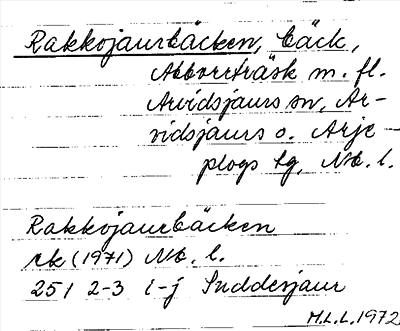 Rakkojaurbäcken, bäck,
Abborrträsk m. fl.
Arvidsjaurs sn, Ar-
vidsjaurs o. Arje-
plogs tg, Nb. l.
Rakkojaurbäcken
rk (1971) Nb. l.
251 2-3 i-j Suddesjaur
M.L.L. 1972